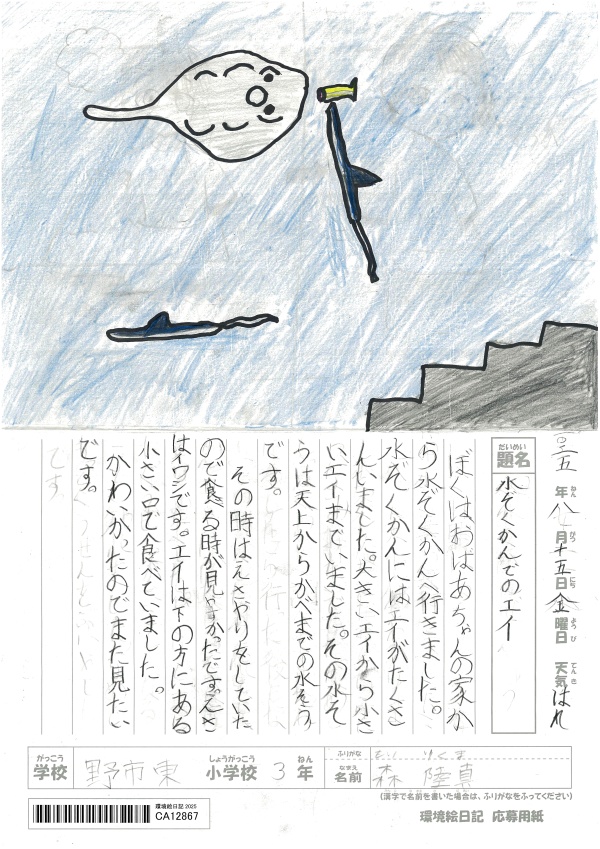 二〇二五年八月十五日金曜日 天気はれ
ねん がつ にち ようび てんき
だいめい
題名 水ぞくかんでのエイ
ぼくはおばあちゃんの家か
ら水ぞくかんへ行きました。
水ぞくかんにはエイがたくさ
んいました。大きいエイから小さ
いエイまでいました。その水そ
うは天上からかべまでの水そう
です。
その時はえさやりをしていた
ので食べる時が見やすかったです。えさ
はイワシです。エイは下の方にある
小さい口で食べていました。
かわいかったのでまた見たい
です。
がっこう しょうがっこう ねん ふりがな もり りくま
学校 野市東 小学校 3年 なまえ 名前 森 陸真
(漢字で名前を書いた場合は、ふりがなをふってください)
環境絵日記 2025
CA12867
環境絵日記 応募用紙